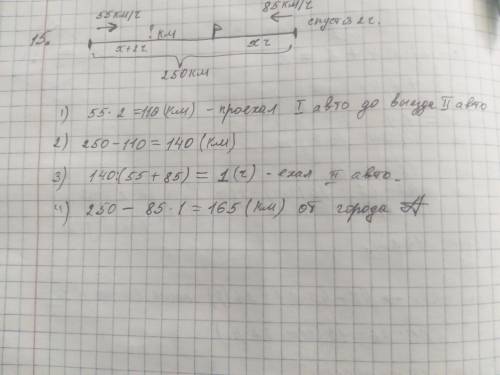 55км/ч 85км/ч
15. ? км P спустя 2ч.
x+2ч xч
250км
1) 55·2=110 (км) - проехал I авто до выезда II авто
2) 250-110=140 (км)
3) 140:(55+85) = 1(ч) - ехал II авто.
4) 250 - 85·1=165 (км) от города А